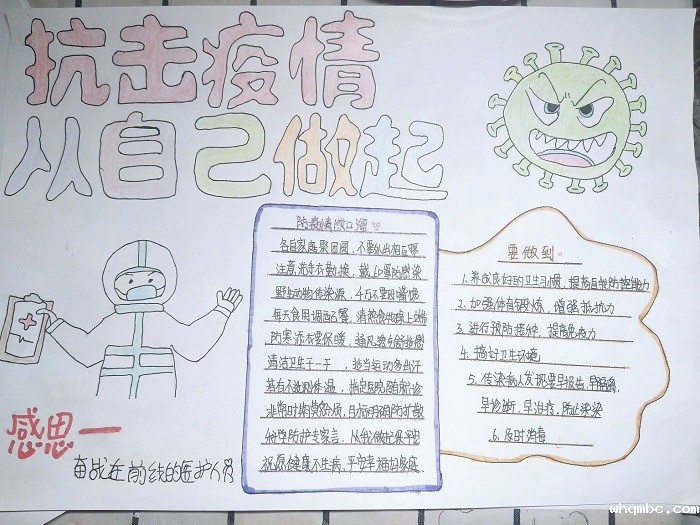 抗击疫情
从自己做起
防疫情顺口溜
各自家庭聚团圆，不要外出相互聚
注意洗手衣勤换，戴口罩防感染
野生动物传染源，千万不要因嘴馋
每天食用调配餐，清热食物端上
防寒添衣要保暖，通风
清洁卫生干一干，适当运动多出汗
若有不适测体温，指定医院随前诊
非常时期莫添烦，目标明确防扩散
科学防护专家言，从我做起保平安
祝愿健康不生病，平安幸福如家庭
要做到
1. 养成良好的卫生习惯，提高自我防控能力
2. 加强体育锻炼，增强抵抗力
3. 进行预防接种，提高免疫力
4. 搞好卫生环境
5. 传染病人发现要早报告，早隔离，
早诊断，早治疗，防止传染
6. 及时消毒
感恩一
奋战在前线的医护人员
whqmbc.com